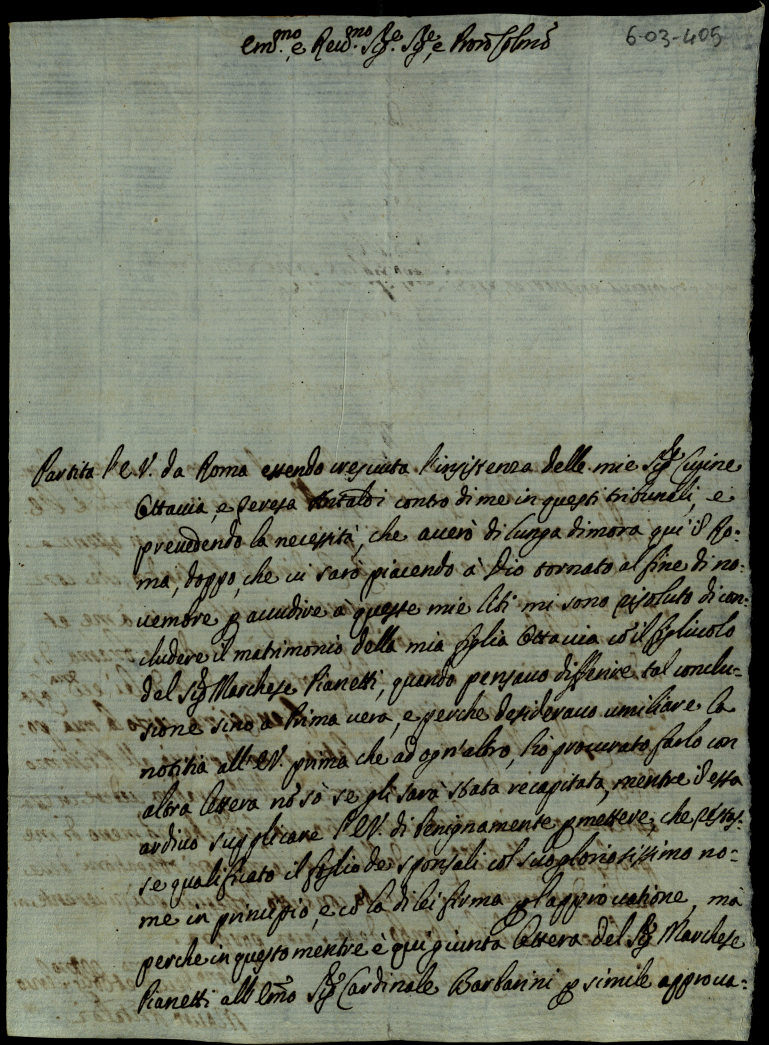 6-03-405
Em.mo, e Reu.mo Sig.e Sig.e, e Pron Colmo
Partita l'E V. da Roma essendo cresciuta l'insistenza delle mie Sig.e Cugine
Ottauia, e Teresa Antaldi contro di me in questi tribunali, e
preuedendo la necessità, che auerò di lunga dimora quì ĩ Ro:
ma, doppo, che ui sarò piacendo à Dio tornato al fine di no:
uembre p accudire à queste mie liti mi sono risoluto di con:
cludere il matrimonio della mia figlia Ottauia cõ il figliuolo
del Sig.r Marchese Pianetti, quando pensauo differire tal conclu:
sione sino a Prima uera, e perche desiderauo umiliare la
notitia all'E V. prima che ad ogn'altro, hò procurato farlo con
altra lettera nõ sò se gli sarà stata recapitata, mentre ĩ essa
ardiuo supplicare l'E V. di benignamente pmettere, che restas:
se qualificato il foglio de sponsali col suo gloriosissimo no:
me in principio, e cõ la di lei firma p l'approuatione, mà
perche in questo mentre è qui giunta lettera del Sig.r Marchese
Pianetti all'Emo Sig.r Cardinale Barbarini p simile approua: